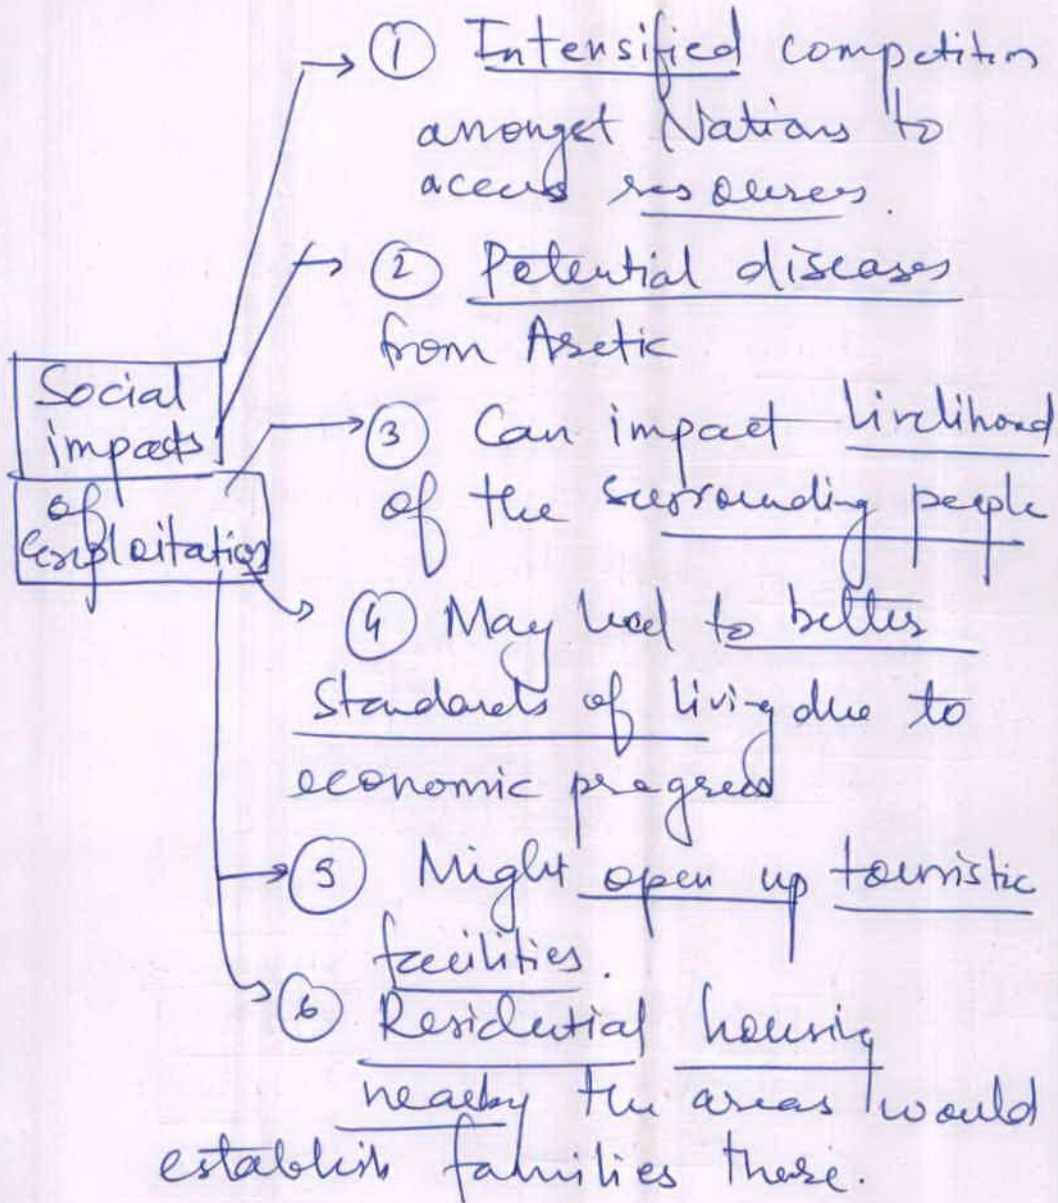 Social
impacts
of
exploitation
① Intensified competition
amongst Nations to
access resources.
② Potential diseases
from Arctic
③ Can impact livelihood
of the surrounding people
④ May lead to better
standards of living due to
economic progress
⑤ Might open up touristic
facilities.
⑥ Residential housing
nearby the areas would
establish families there.